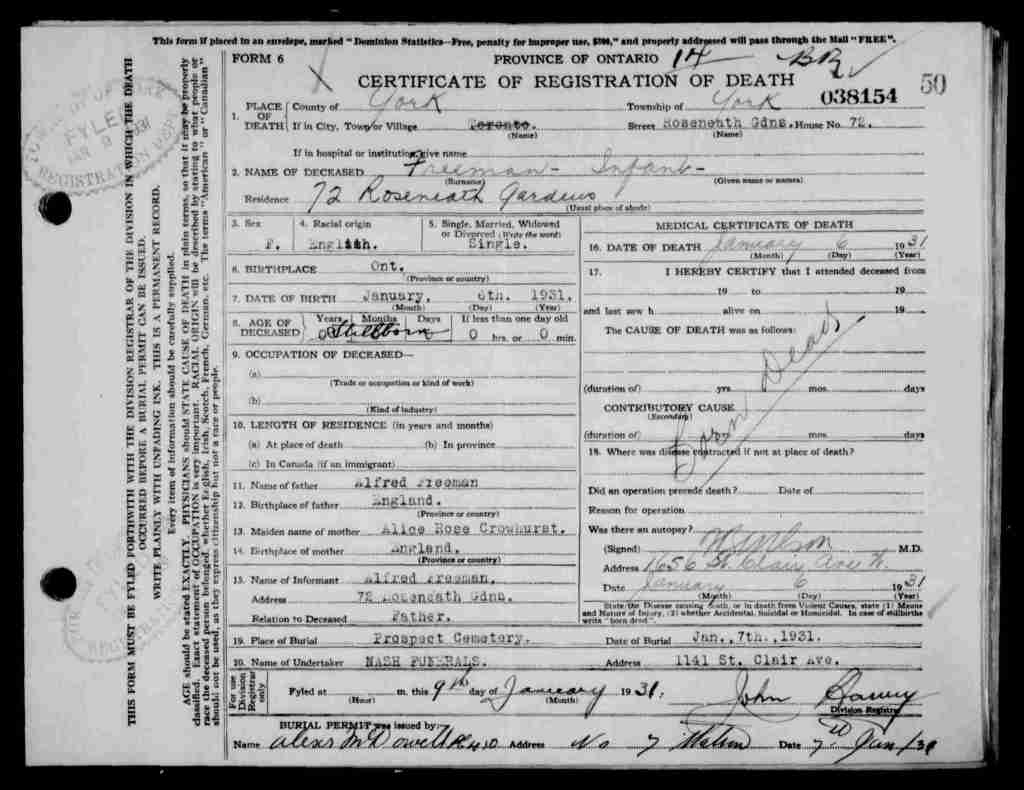 This form if placed in an envelope, marked "Dominion Statistics—Free, penalty for improper use, $300," and properly addressed will pass through the Mail "FREE".
FORM 6 PROVINCE OF ONTARIO 14
CERTIFICATE OF REGISTRATION OF DEATH
038154 50
1. PLACE OF DEATH County of York Township of York
If in City, Town or Village Toronto. Street Roseneath Gdns. House No. 72.
(Name) (Name)
If in hospital or institution, give name
2. NAME OF DECEASED Freeman - Infant -
(Surname) (Given name or names)
Residence 72 Roseneath Gardens
(Usual place of abode)
3. Sex F.
4. Racial origin English.
5. Single, Married, Widowed or Divorced (Write the word) Single.
6. BIRTHPLACE Ont.
(Province or country)
7. DATE OF BIRTH January, 6th. 1931.
(Month) (Day) (Year)
8. AGE OF DECEASED Years Months Days If less than one day old
0 Stillborn 0 hrs. or 0 min.
9. OCCUPATION OF DECEASED—
(a)
(Trade or occupation or kind of work)
(b)
(Kind of industry)
10. LENGTH OF RESIDENCE (in years and months)
(a) At place of death (b) In province
(c) In Canada (if an immigrant)
11. Name of father Alfred Freeman
12. Birthplace of father England.
(Province or country)
13. Maiden name of mother Alice Rose Crowhurst.
14. Birthplace of mother England.
(Province or country)
15. Name of Informant Alfred Freeman.
Address 72 Roseneath Gdns.
Relation to Deceased Father.
MEDICAL CERTIFICATE OF DEATH
16. DATE OF DEATH January 6 1931
(Month) (Day) (Year)
17. I HEREBY CERTIFY that I attended deceased from
19 to 19
and last saw h alive on 19
The CAUSE OF DEATH was as follows:
Born Dead
(duration of) yrs. mos. days
CONTRIBUTORY CAUSE
(Secondary)
(duration of) mos. days
18. Where was disease contracted if not at place of death?
Did an operation precede death? Date of
Reason for operation
Was there an autopsy?
(Signed) M.D.
Address 1656 St. Clair Ave W.
Date January 6 1931
(Month) (Day) (Year)
State the Disease causing death, or in death from Violent Causes, state (1) Means and Nature of Injury, (2) whether Accidental, Suicidal or Homicidal. In case of stillbirths write "born dead".
19. Place of Burial Prospect Cemetery. Date of Burial Jan., 7th., 1931.
20. Name of Undertaker NASH FUNERALS. Address 1141 St. Clair Ave.
For use Division Registrar only
Fyled at m. this 9th day of January 1931.
(Hour) (Month)
John
Division Registrar
BURIAL PERMIT was issued by:
Name Alexr McDowell Address No 7 Date 7 Jan/31
THIS FORM MUST BE FYLED FORTHWITH WITH THE DIVISION REGISTRAR OF THE DIVISION IN WHICH THE DEATH
OCCURRED BEFORE A BURIAL PERMIT CAN BE ISSUED.
WRITE PLAINLY WITH UNFADING INK. THIS IS A PERMANENT RECORD.
Every item of information should be carefully supplied.
AGE should be stated EXACTLY. PHYSICIANS should STATE CAUSE OF DEATH in plain terms, so that it may be properly
classified. Exact statement of OCCUPATION is very important. RACIAL ORIGIN will be described by stating to what people or
race the deceased person belonged, whether English, Irish, Scotch, French, German, etc. The terms "American" or "Canadian"
should not be used, as they express citizenship but not a race or people.
FYLED